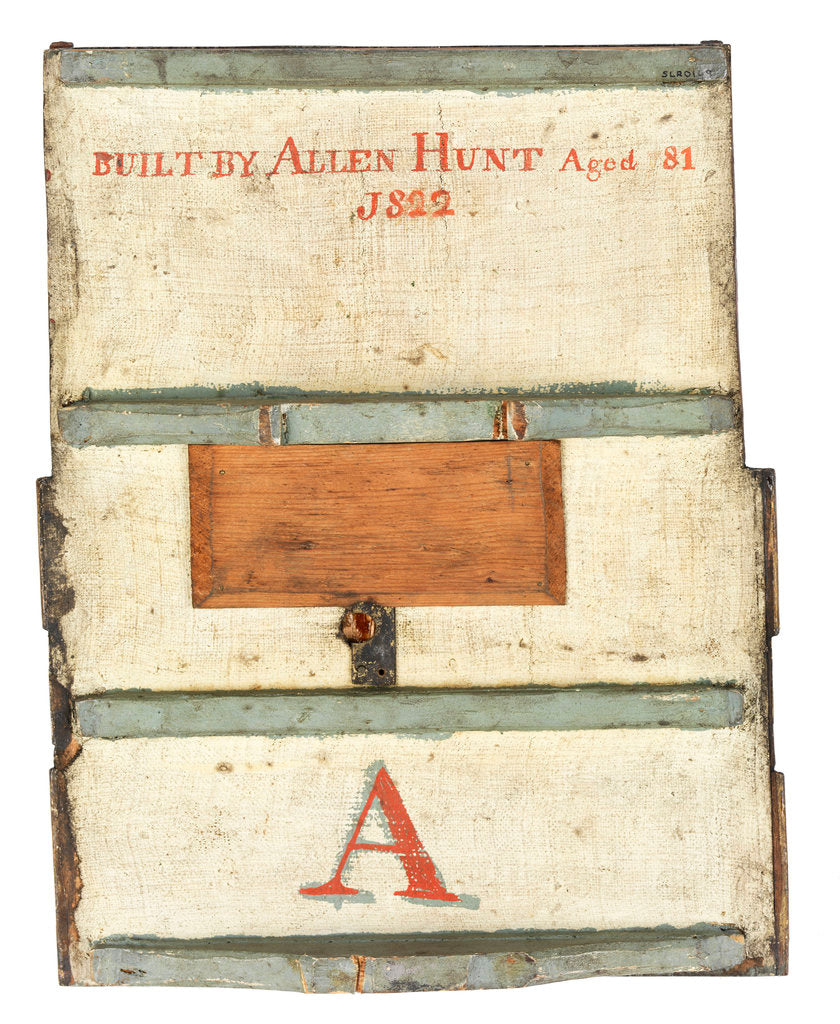 BUILT BY ALLEN HUNT Aged 81
J822
A